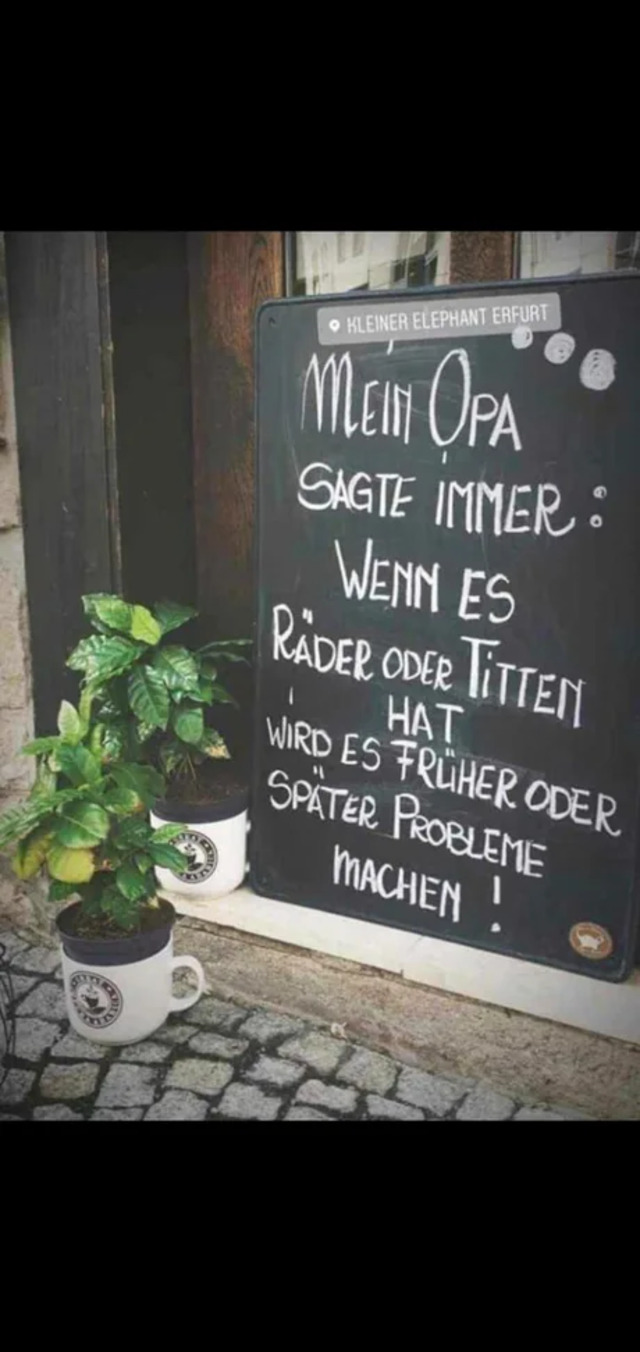 KLEINER ELEPHANT ERFURT
MEIN OPA
SAGTE IMMER:
WENN ES
RÄDER ODER TITTEN
HAT
WIRD ES FRÜHER ODER
SPÄTER PROBLEME
MACHEN!